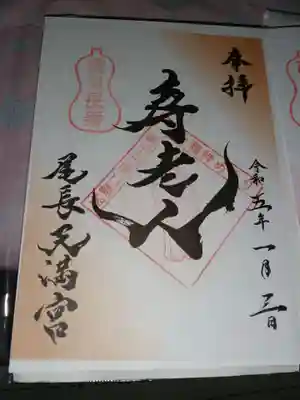 奉拝
令和五年一月三日
寿老人
尾長天満宮